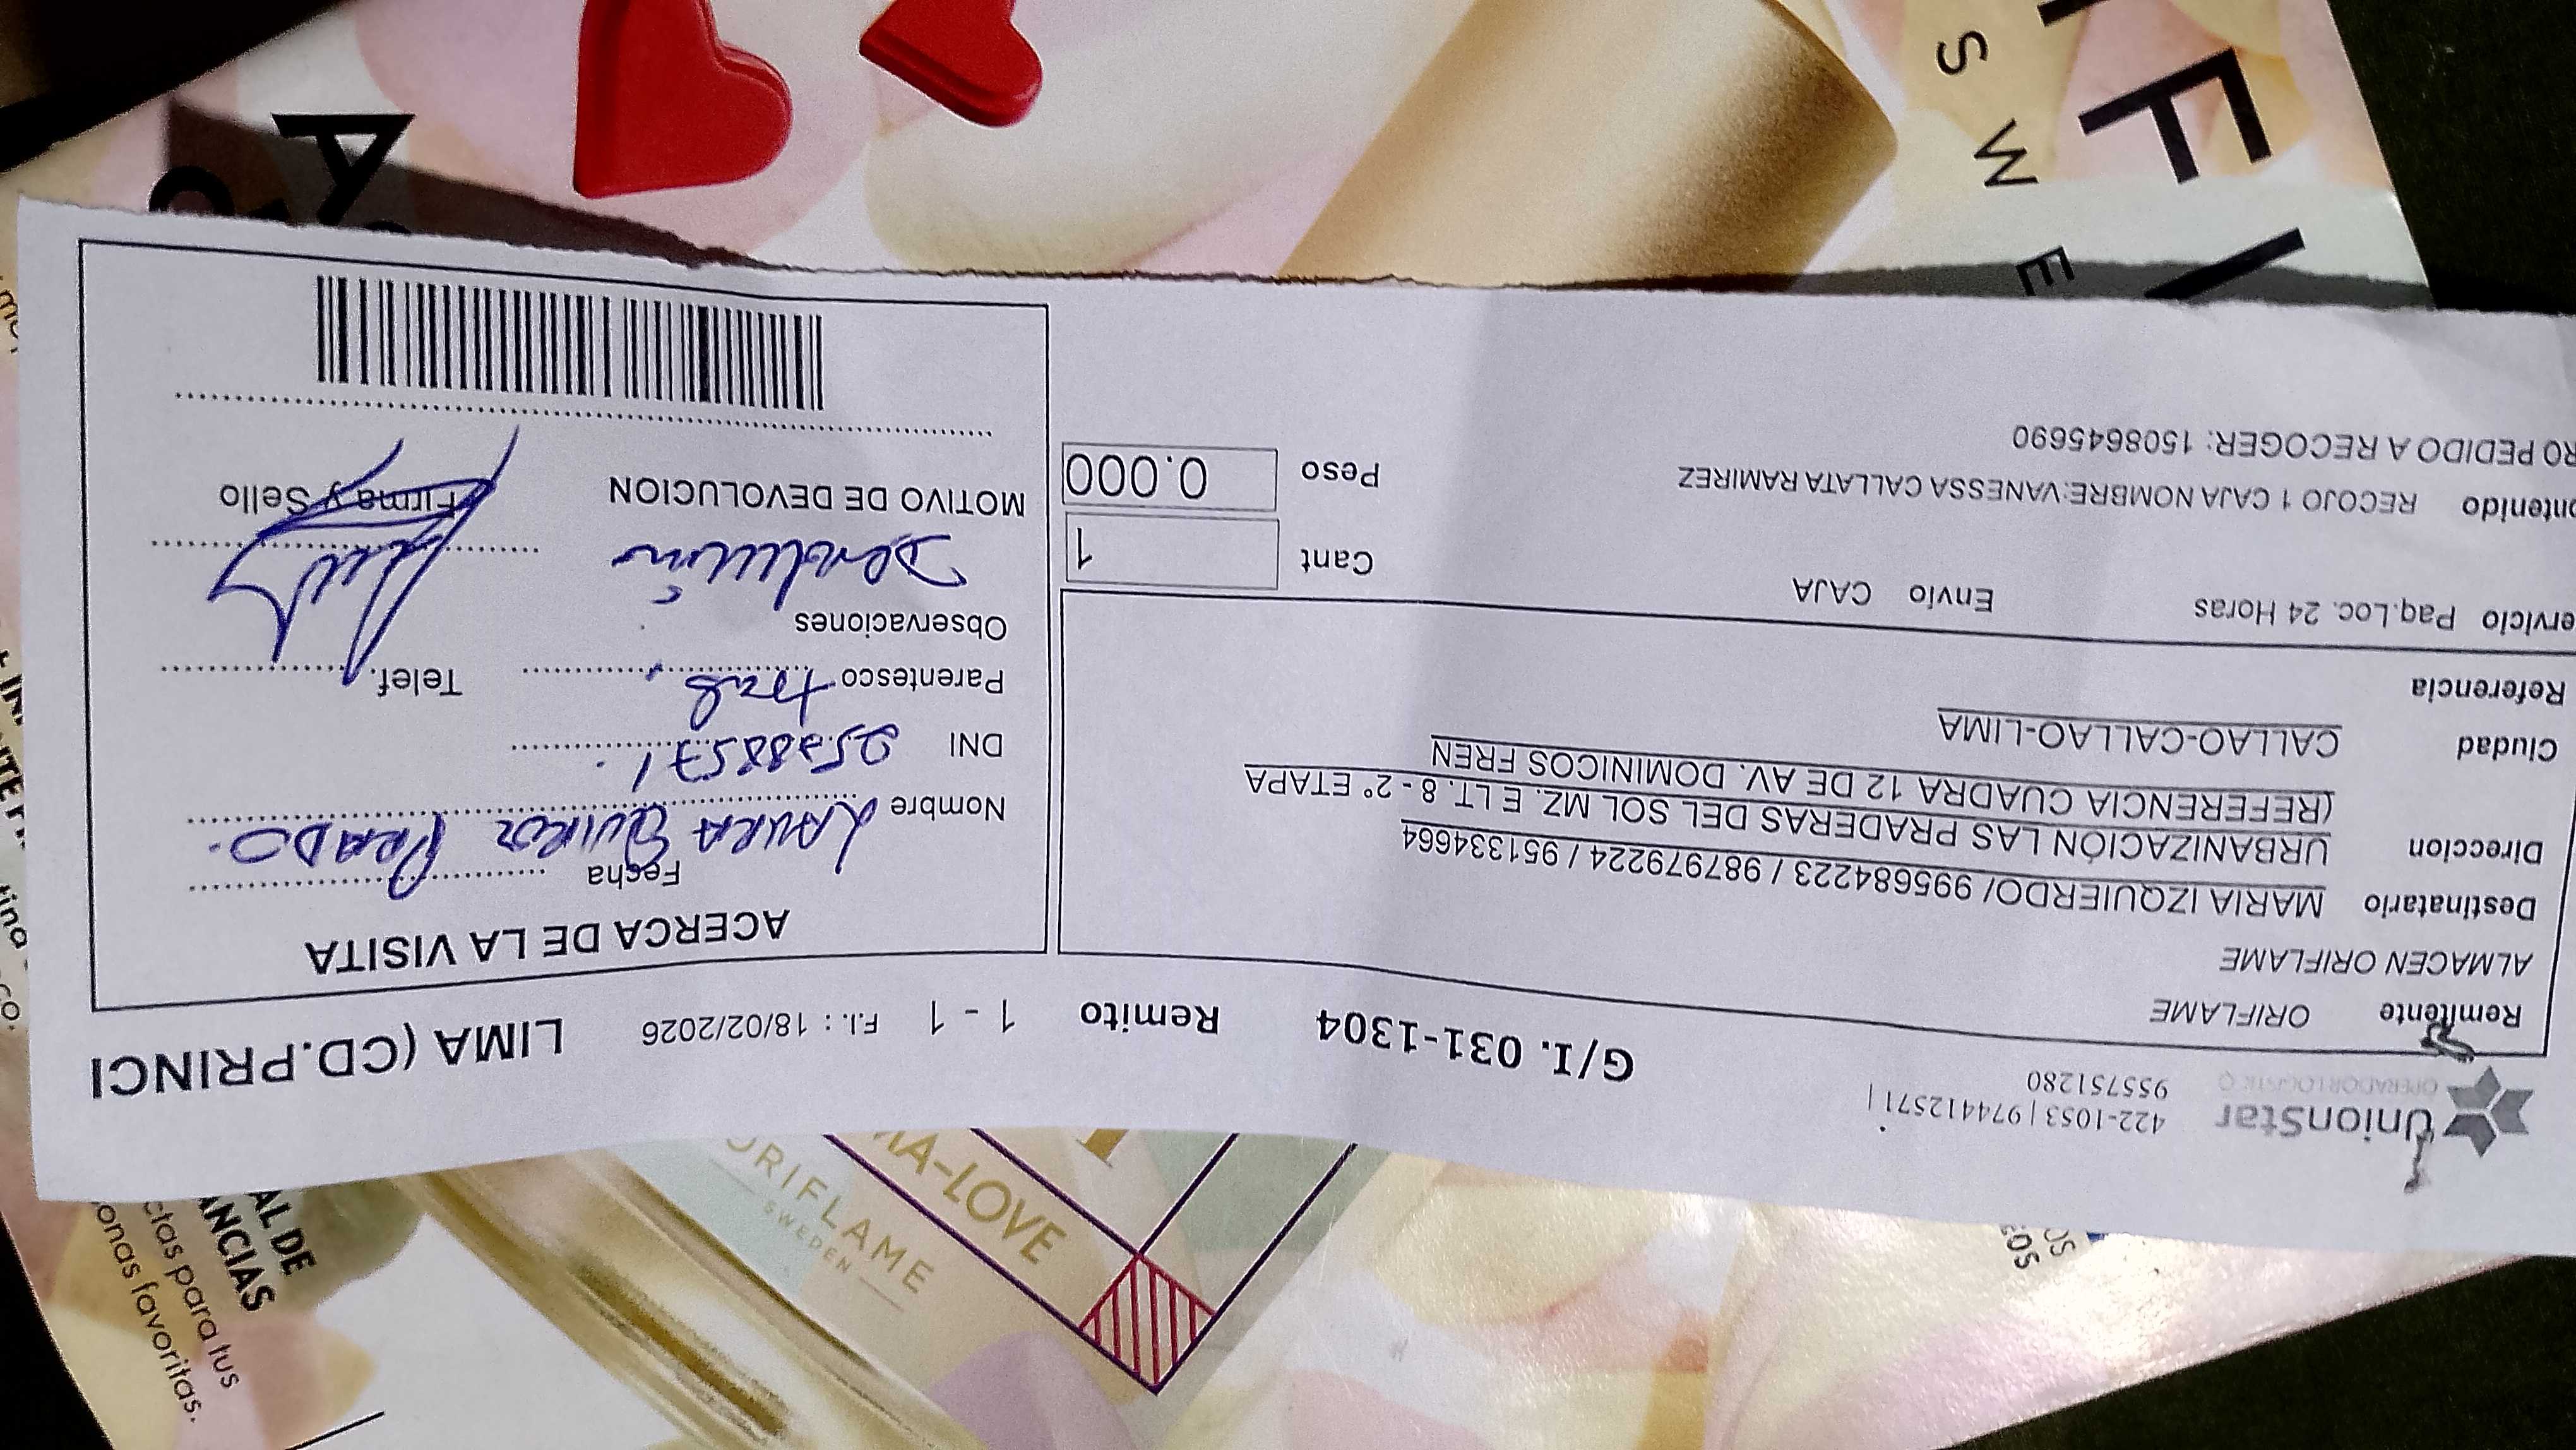 UnionStar
OPERADOR LOGISTICO
422-1053 | 974412571 |
955751280
G/I. 031-1304
Remito 1 - 1
F.I.: 18/02/2026
LIMA (CD.PRINCI
Remitente ORIFLAME
ALMACEN ORIFLAME
Destinatario MARIA IZQUIERDO/ 995684223 / 987979224 / 951334664
Direccion URBANIZACIÓN LAS PRADERAS DEL SOL MZ. E LT. 8 - 2° ETAPA
(REFERENCIA CUADRA 12 DE AV. DOMINICOS FREN
Ciudad CALLAO-CALLAO-LIMA
Referencia
ervicio Paq.Loc. 24 Horas Envío CAJA
Cant 1
ontenido RECOJO 1 CAJA NOMBRE:VANESSA CALLATA RAMIREZ
RO PEDIDO A RECOGER: 1508645690
Peso 0.000
ACERCA DE LA VISITA
Fecha
Nombre LAURA QUIROZ PRADO.
DNI 25788571.
Parentesco trab
Telef.
Observaciones
Devolución
MOTIVO DE DEVOLUCION
Firma y Sello
ORIFLAME
SWEDEN
MA-LOVE
AL DE
ANCIAS
ctas para tus
onas favoritas.
S W E